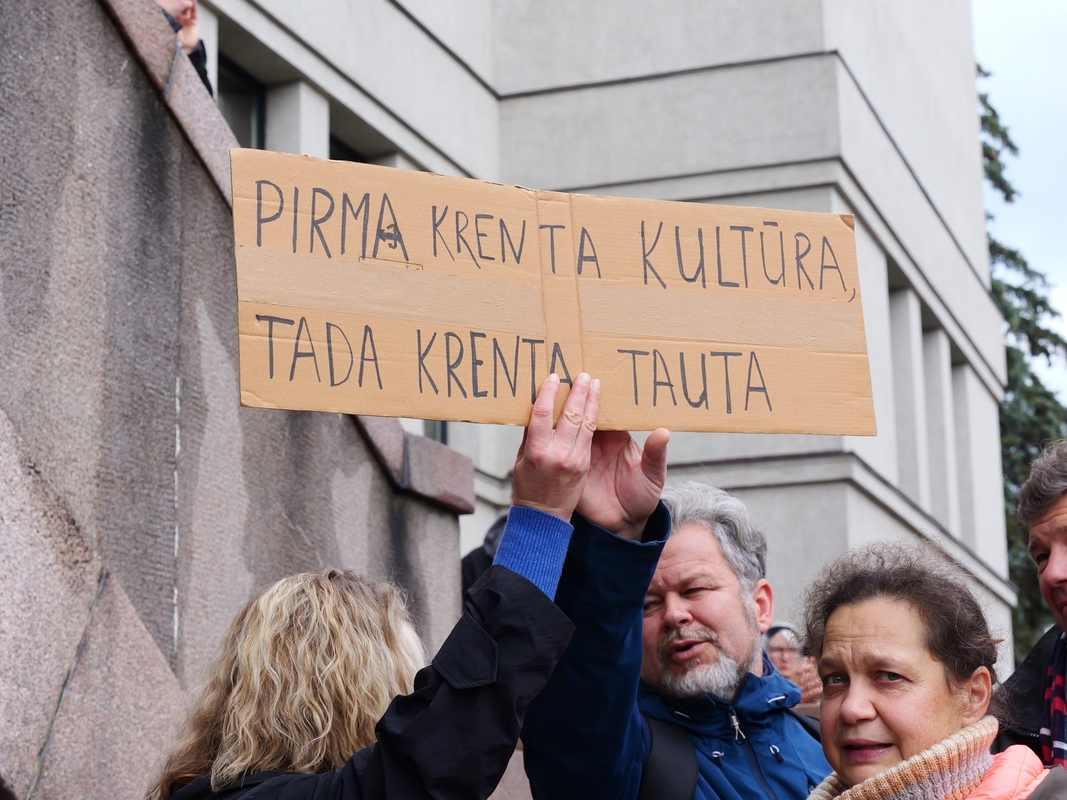 PIRMA KRENTA KULTŪRA,
TADA KRENTA TAUTA